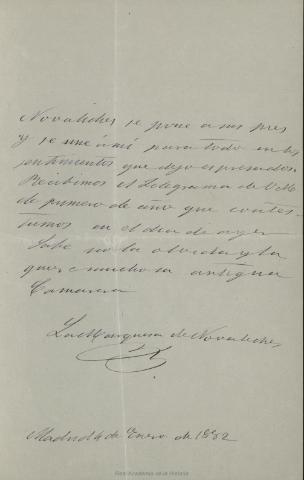 Novaliches se pone a sus pies
y se une á mi para todo en los
sentimientos que dejo espresados.
Recibimos el Telegrama de V.M.
de primero de año que contes
tamos en el dia de ayer
Sabe no la olvida y la
quiere mucho su antigua
Camarera
La Marquesa de Novaliches
Madrid 4 de Enero de 1882
Real Academia de la Historia